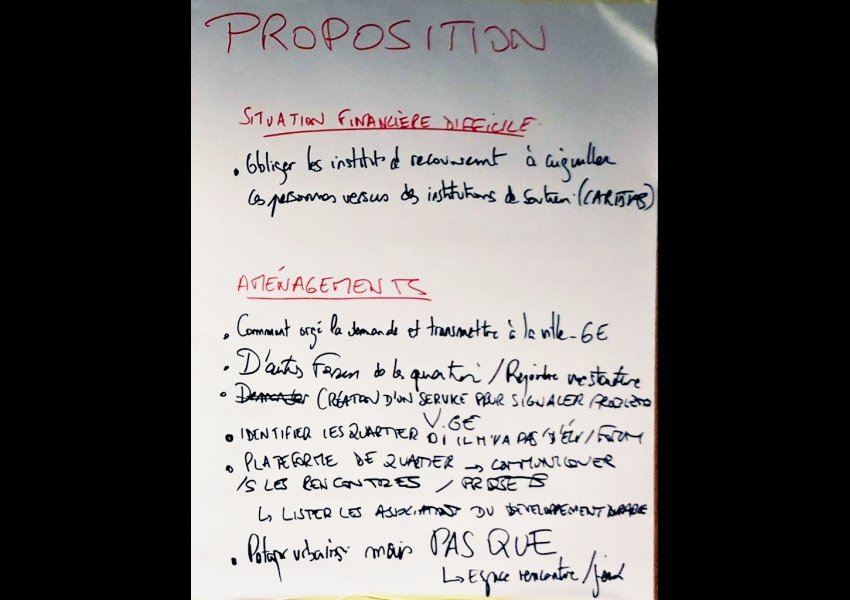 PROPOSITION
SITUATION FINANCIÈRE DIFFICILE
• Obliger les institut° d recouvrement à aiguiller
ces personnes versus des institutions de soutien (CARITAS)
AMÉNAGEMENTS
• Comment la demande et transmettre à la ville - GE
• D'autres Forum de quartier / Rejoindre une structure
• Demander CRÉATION D'UN SERVICE POUR SIGNALER
V.GE
• IDENTIFIER LES QUARTIER OÙ IL N'Y A PAS D'ÉV / FORUM
• PLATEFORME DE QUARTIER → COMMUNIQUER
/S LES RENCONTRES / PROJETS
↳ LISTER LES ASSOCIATIONS DU DEVELOPPEMENT DURABLE
• Potager urbain mais PAS QUE
↳ Espace rencontre /